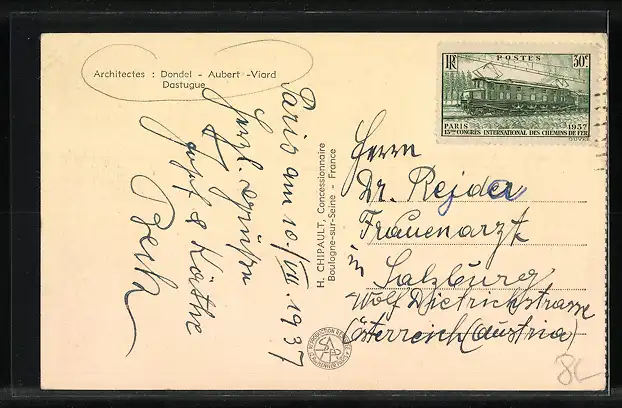 Architectes : Dondel - Aubert - Viard
Dastugue
Paris am 10./VIII. 1937
Herzl. Grüße
Josef & Käthe
H. CHIPAULT, Concessionnaire
Boulogne-sur-Seine - France
RF
POSTES
30c
PARIS 1937
13ME CONGRÈS INTERNATIONAL DES CHEMINS DE FER
Herrn
Dr. Rejder
Frauenarzt
in Salzburg
Wolf Dietrichstrasse
Österreich (Austria)
8L